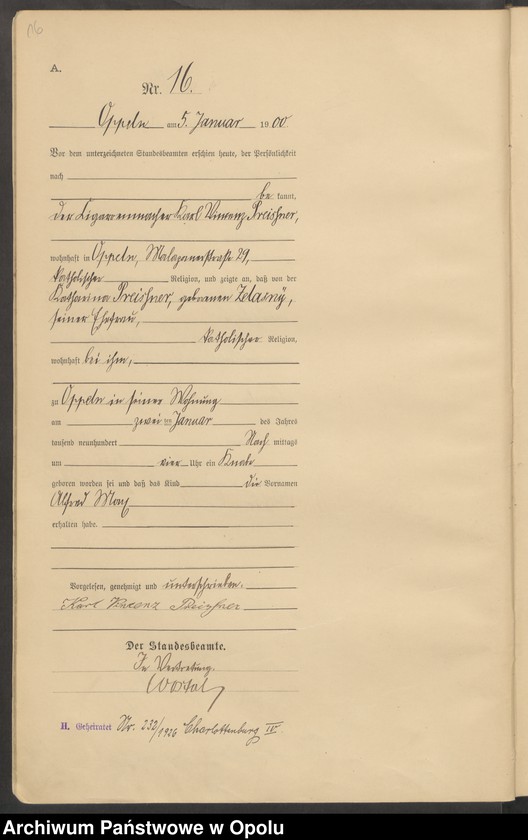 A.
Nr. 16.
Oppeln am 5. Januar 1900
Vor dem unterzeichneten Standesbeamten erschien heute, der Persönlichkeit
nach
be kannt,
der Cigarrenmacher Karl Vincenz Preißner,
wohnhaft in Oppeln, Malapanerstraße 29,
katholischer Religion, und zeigte an, daß von der
Katharina Preißner, geborenen Zdasny,
seiner Ehefrau,
katholischer Religion,
wohnhaft bei ihm,
zu Oppeln in seiner Wohnung
am zwei ten Januar des Jahres
tausend neunhundert Nach mittags
um vier Uhr ein Knabe
geboren worden sei und daß das Kind die Vornamen
Alfred Max
erhalten habe.
Vorgelesen, genehmigt und unterschrieben.
Karl Vincenz Preißner
Der Standesbeamte.
In Vertretung.
II. Geheiratet Nr. 232/1926 Charlottenburg IV
Archiwum Państwowe w Opolu